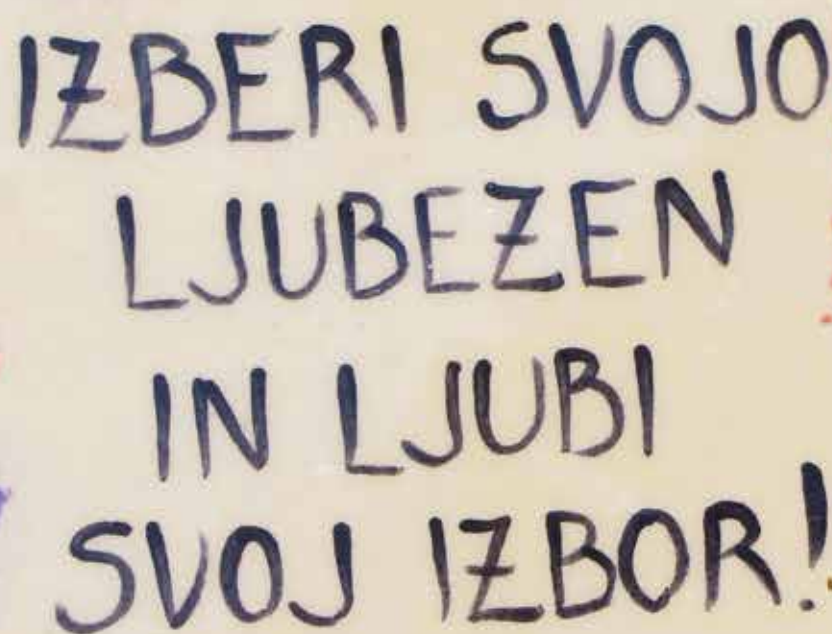 IZBERI SVOJO
LJUBEZEN
IN LJUBI
SVOJ IZBOR!